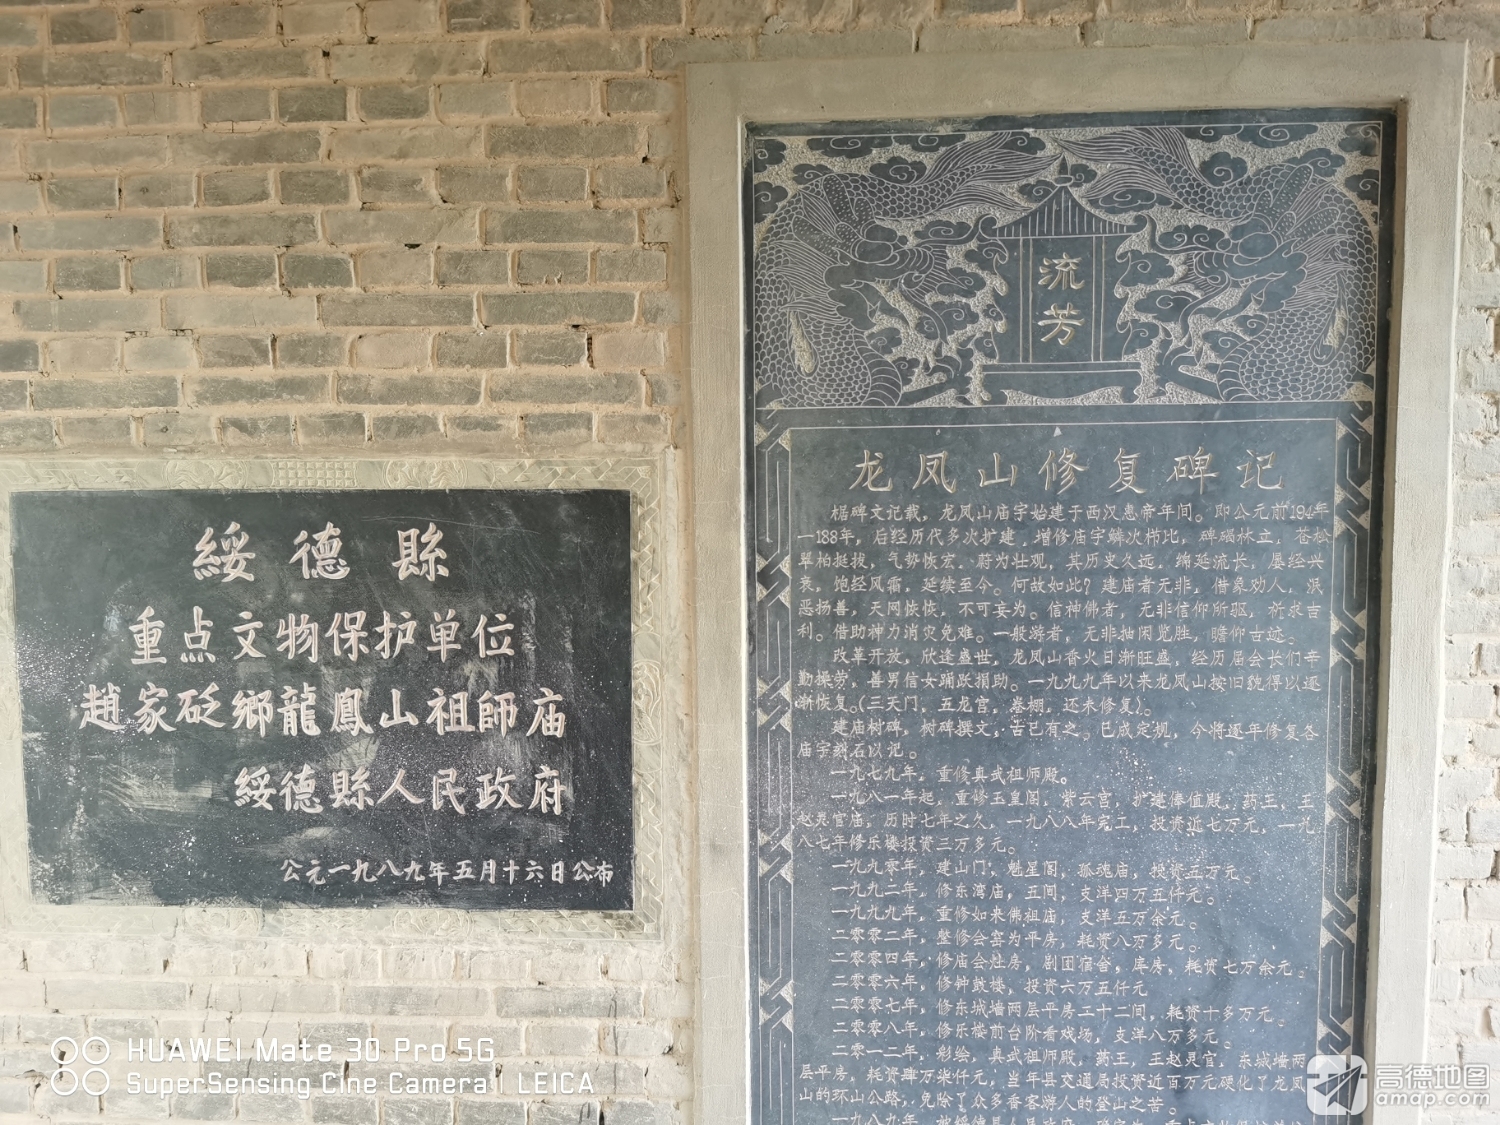 綏德縣
重点文物保护单位
趙家砭鄉龍鳳山祖師庙
綏德縣人民政府
公元一九八九年五月十六日公布
流
芳
龙凤山修复碑记
椐碑文记载，龙凤山庙宇始建于西汉惠帝年间。即公元前194年
一188年，后经历代多次扩建，增修庙宇鳞次栉比，碑碣林立，苍松
翠柏挺拔，气势恢宏，蔚为壮观，其历史久远，绵延流长，屡经兴
衰，饱经风霜，延续至今。何故如此？建庙者无非，借象劝人，泯
恶扬善，天网恢恢，不可妄为。信神佛者，无非信仰所驱，祈求吉
利。借助神力消灾免难。一般游者，无非抽闲览胜，瞻仰古迹。
改革开放，欣逢盛世，龙凤山香火日渐旺盛，经历届会长们辛
勤操劳，善男信女踊跃捐助。一九九九年以来龙凤山按旧貌得以逐
渐恢复。(三天门、五龙宫，卷棚，还未修复)。
建庙树碑，树碑撰文，古已有之。已成定规，今将逐年修复各
庙宇刻石以记。
一九七九年，重修真武祖师殿。
一九八一年起，重修玉皇阁，紫云宫，扩建俸值殿，药王，王
赵灵官庙，历时七年之久，一九八八年完工，投资近七万元，一九
八七年修乐楼投资三万多元。
一九九零年，建山门，魁星阁，孤魂庙，投资五万元。
一九九二年，修东湾庙，五间，支洋四万五仟元。
一九九九年，重修如来佛祖庙，支洋五万余元。
二零零二年，整修会窑为平房，耗资八万多元。
二零零四年，修庙会灶房，剧团宿舍，库房，耗资七万余元。
二零零六年，修钟鼓楼，投资六万五仟元
二零零七年，修东城墙两层平房二十二间，耗资十多万元。
二零零八年，修乐楼前台阶看戏场，支洋八万多元。
二零一二年，彩绘，真武祖师殿，药王，王赵灵官，东城墙两
层平房，耗资肆万柒仟元，当年县交通局投资近百万元硬化了龙凤
山的环山公路，免除了众多香客游人的登山之苦。
一九八九年，被绥德县人民政府
HUAWEI Mate 30 Pro 5G
SuperSensing Cine Camera | LEICA
高德地图
amap.com